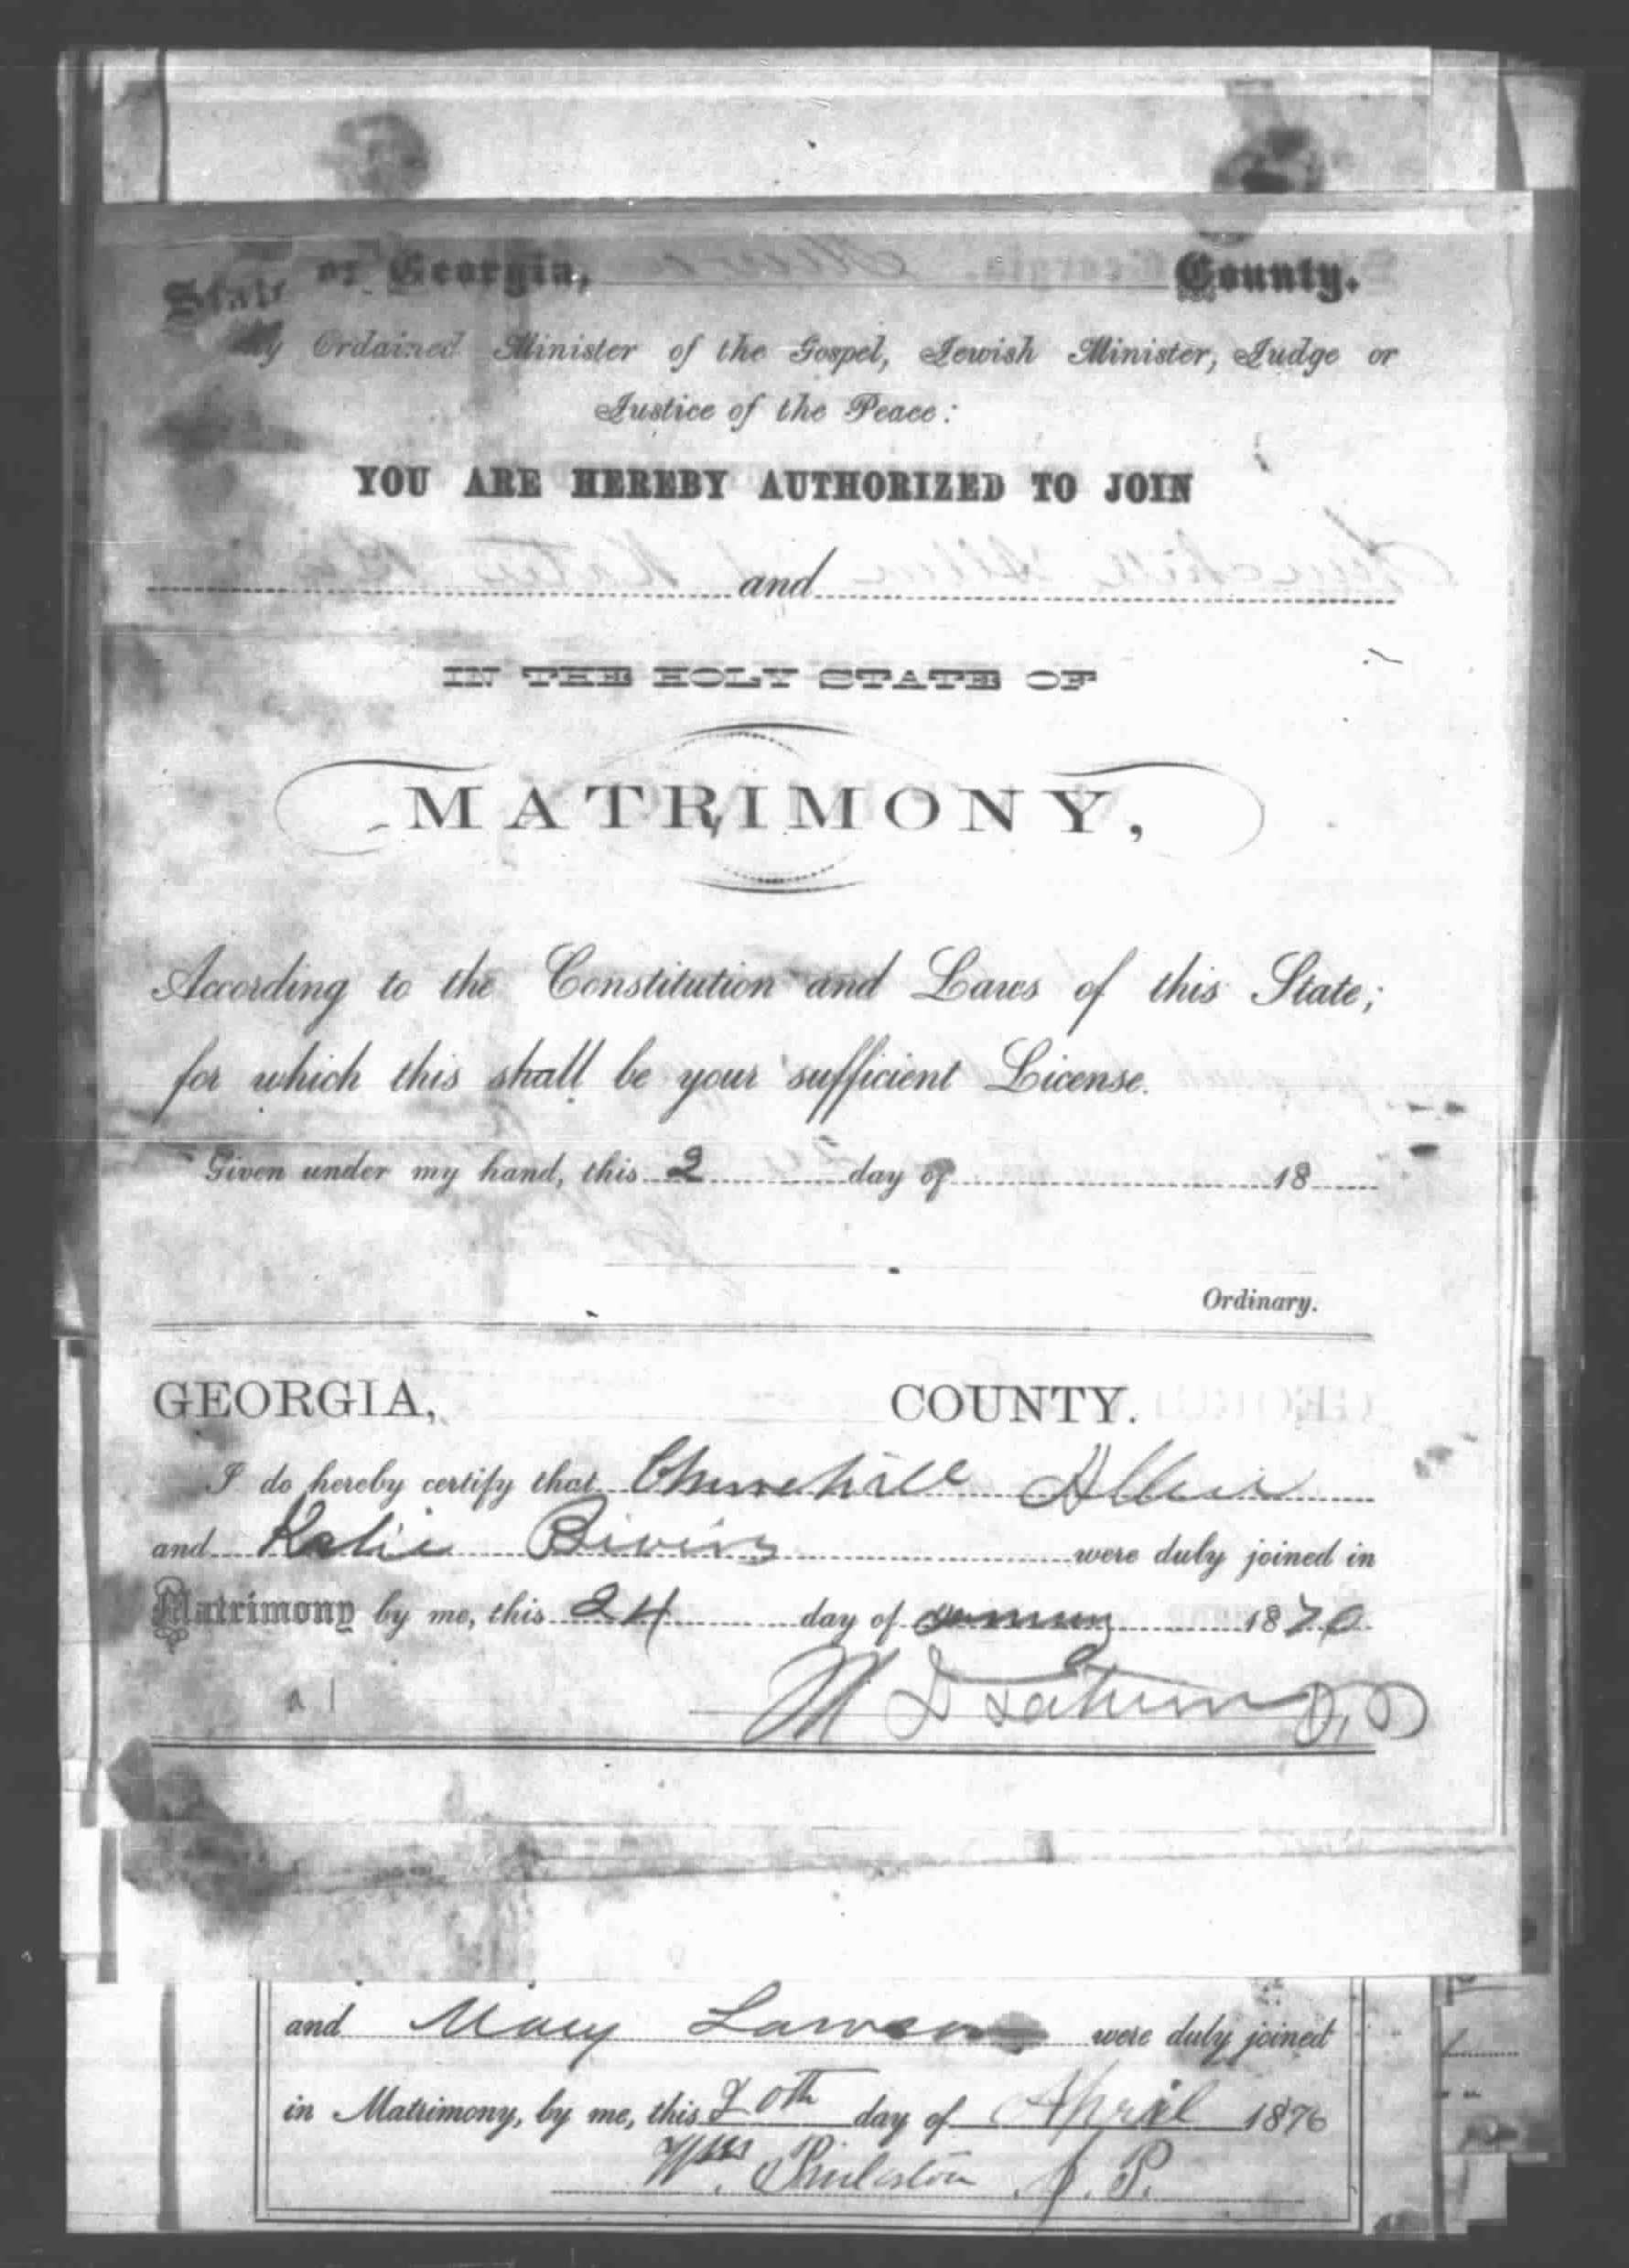 State of Georgia, County.
Any Ordained Minister of the Gospel, Jewish Minister, Judge or
Justice of the Peace:
YOU ARE HEREBY AUTHORIZED TO JOIN
and
IN THE HOLY STATE OF
MATRIMONY,
According to the Constitution and Laws of this State;
for which this shall be your sufficient License.
Given under my hand, this 2 day of 18
Ordinary.
GEORGIA, COUNTY.
I do hereby certify that Churchill Allen
and Katie Bivins were duly joined in
Matrimony by me, this 24 day of January 1870
and Mary Lawson were duly joined
in Matrimony, by me, this 20th day of April 1876
Wm. J. P.